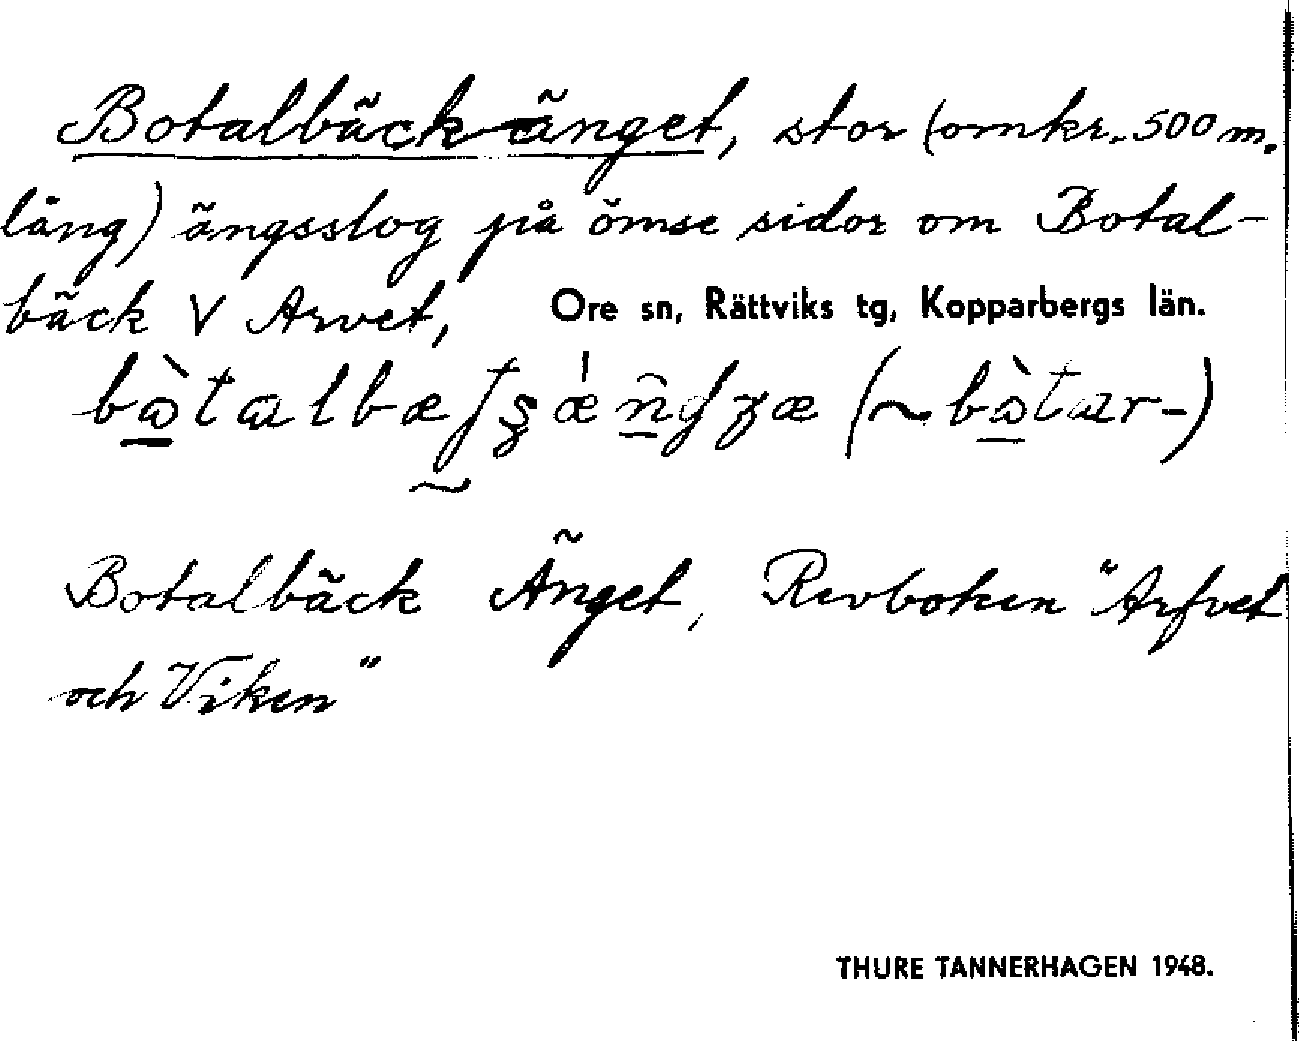 Botalbäckänget, stor (omkr. 500 m.
lång) ängsslog på ömse sidor om Botal-
bäck V Arvet, Ore sn, Rättviks tg, Kopparbergs län.
Botalbäck Änget, Revboken "Arfvet
och Viken"
THURE TANNERHAGEN 1948.